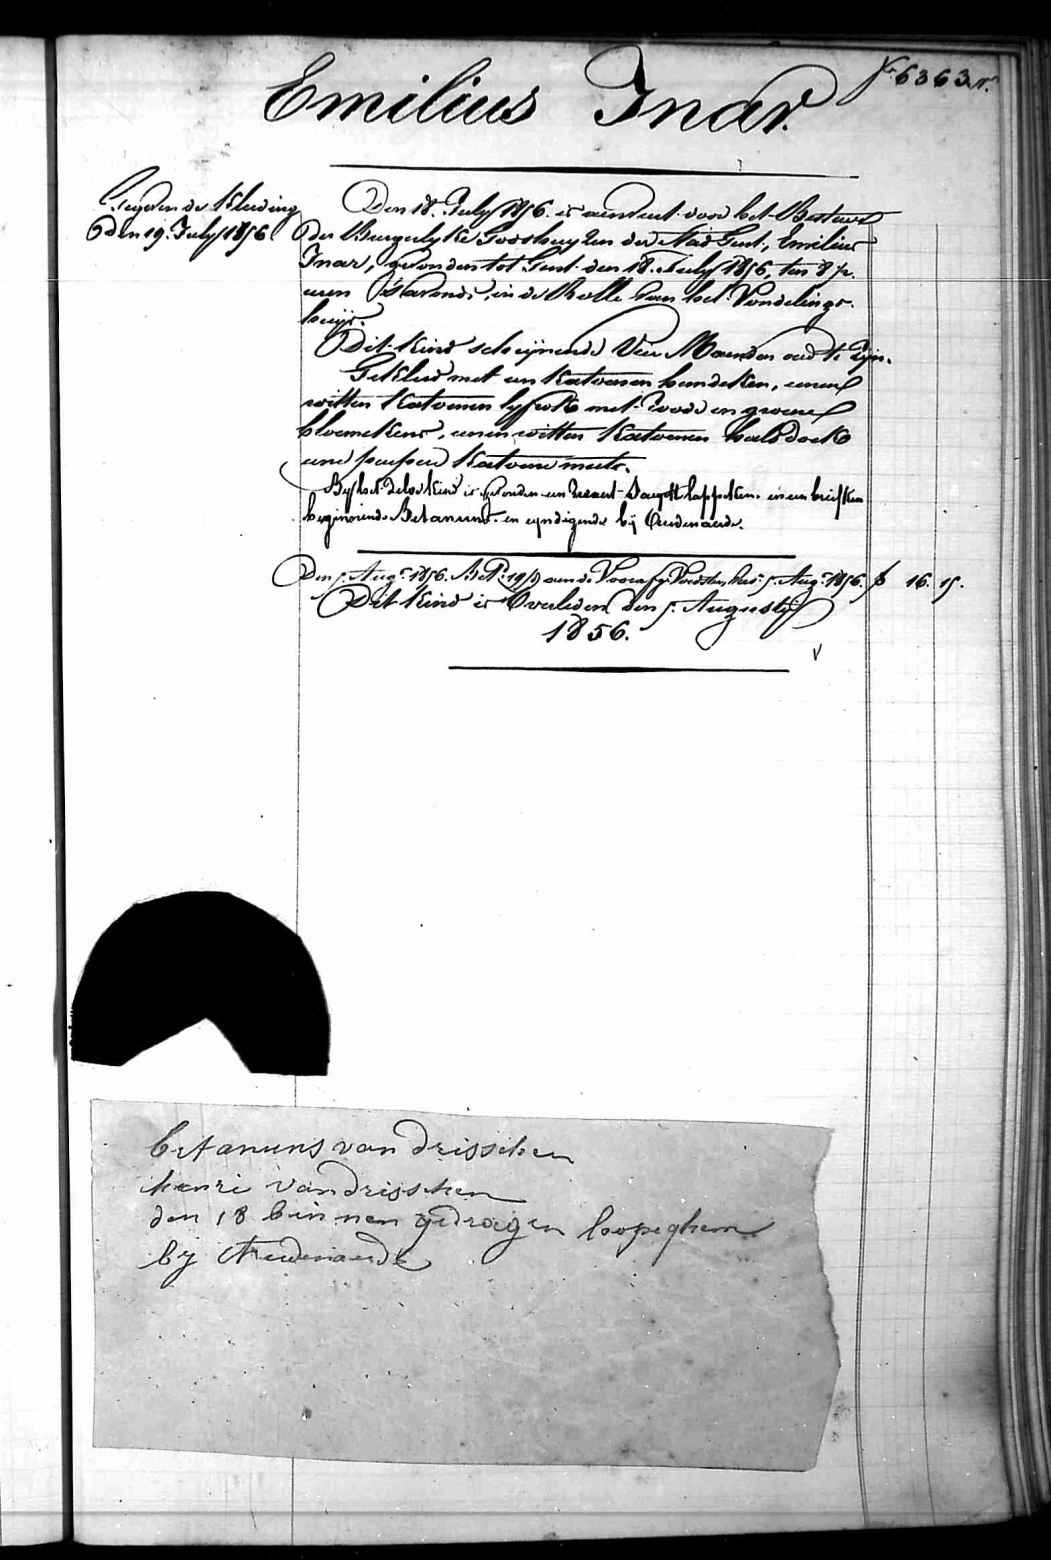 Emilius Inar.
6363
den 19. July 1856
Den 18. July 1856. is aenveert door het Bestuer
der Burgerlyke Godshuyzen der Stad Gent, Emilius
Inar, gevonden tot Gent den 18. July 1856, ten 8 1/2
uren 's avonds, in de Rolle van het Vondelings-
huijs.
Dit kind schijnende vier Maenden oud te zijn.
Gekleed met een katoenen hemdeken, eenen
witten katoenen lyfrok met roode en groene
bloemekens, eenen witten katoenen halsdoek
eene katoene muts.
By het zelve kind is gevonden een lappeken en een briefken
beginnende Betanuns en eyndigende bij Audenaerde.
Den 5. Augt. 1856. 5. Augt. 1856. 16. 15.
Dit kind is Overleden den 5. Augusty
1856.
betanuns van drisschen
henri van drisschen
den 18 binnen gedragen lopeghem
by Audenaerde